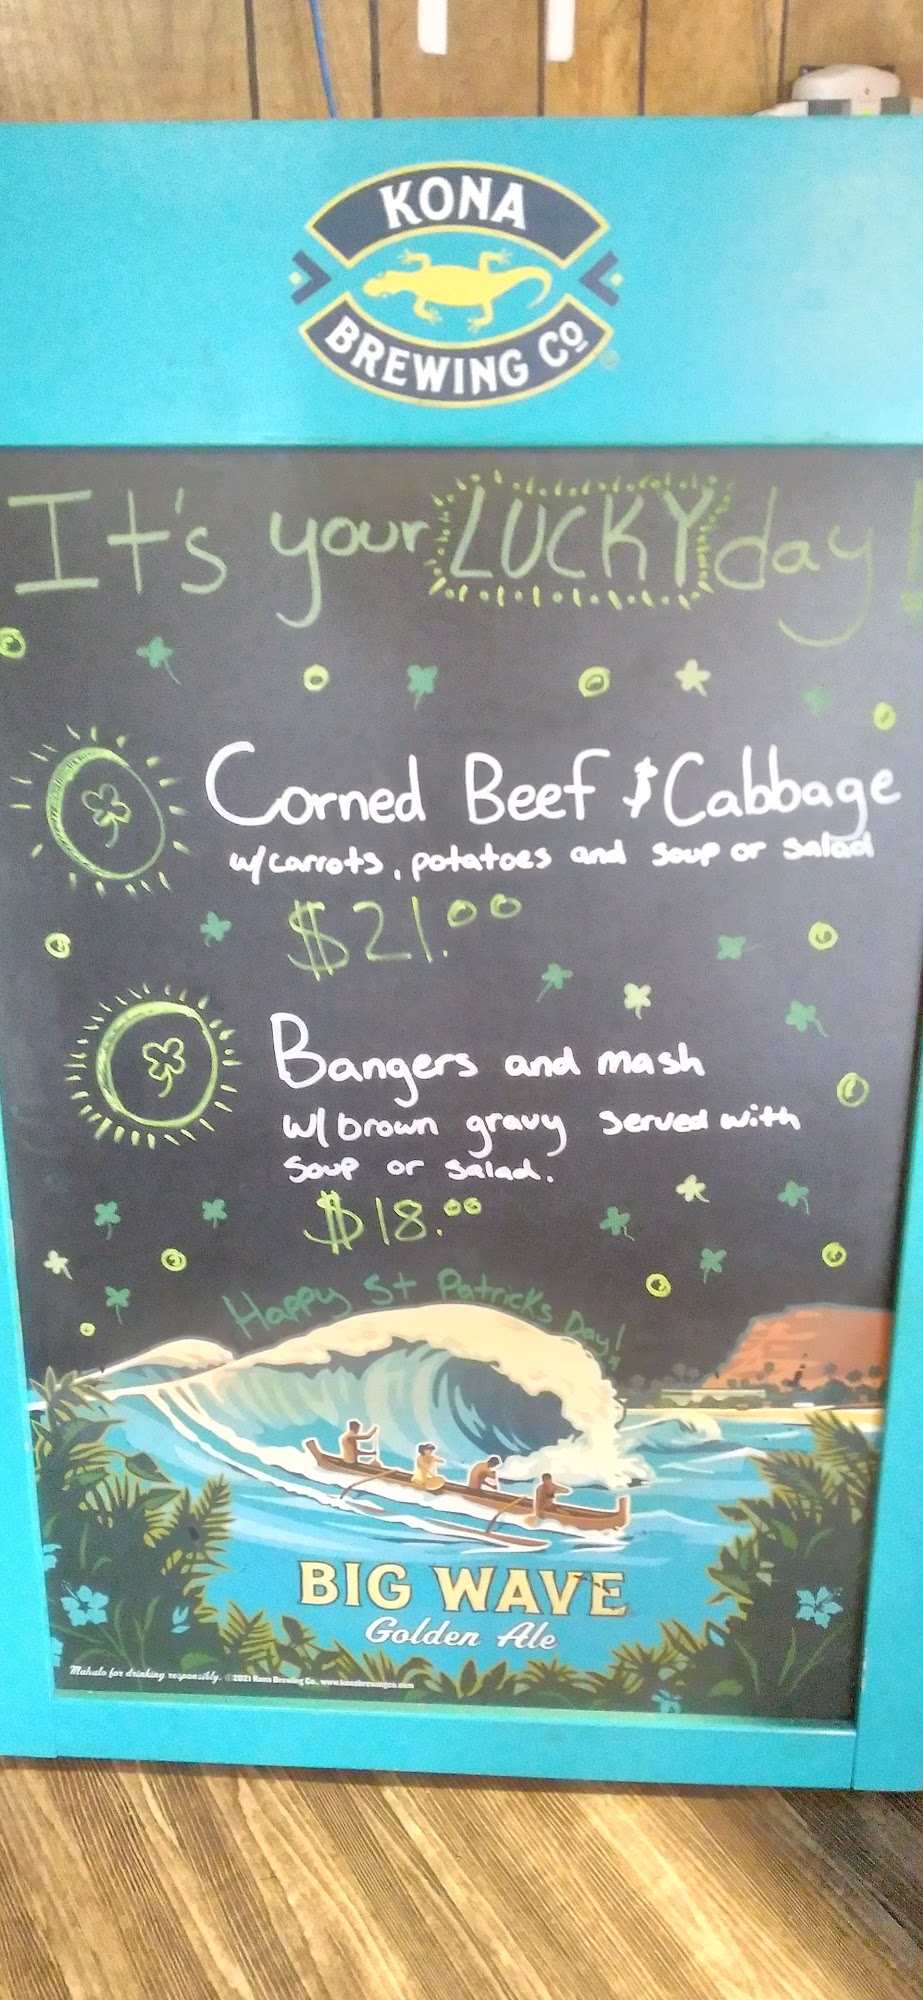 KONA
BREWING Co
It's your LUCKY day!
Corned Beef & Cabbage
w/carrots, potatoes and soup or salad
$21.00
Bangers and mash
w/ brown gravy served with
soup or salad.
$18.00
Happy St Patricks Day!
BIG WAVE
Golden Ale
Mahalo for drinking responsibly. ©2021 Kona Brewing Co. www.konabrewingco.com